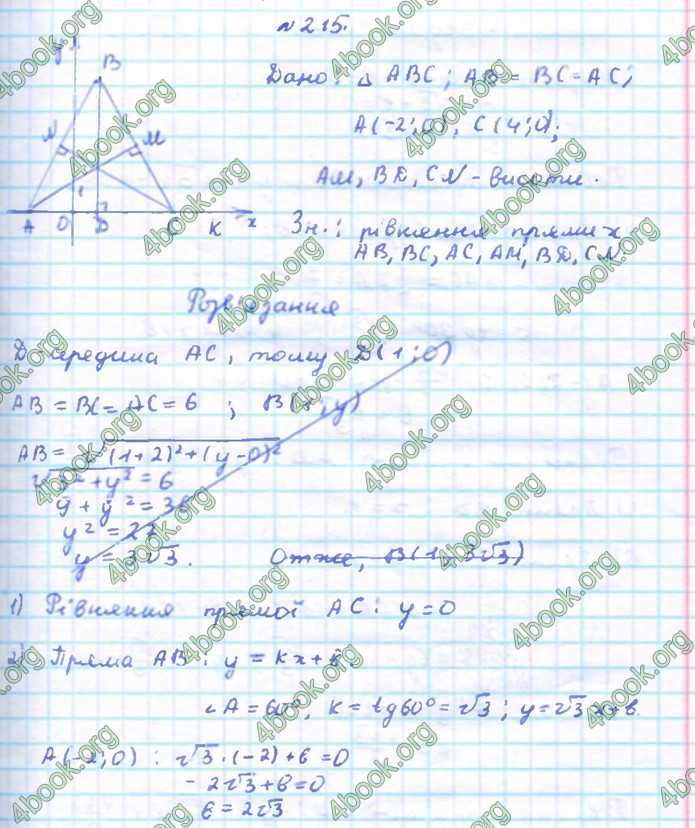 № 215.
Дано: △ ABC; AB = BC = AC;
A(-2; 0), C(4; 0);
AM, BD, CN - висоти.
Зн.: рівняння прямих
AB, BC, AC, AM, BD, CN.
y
B
N
M
1
A
O
D
C
K
x
Розв'язання
D середина AC, тому D(1; 0)
AB = BC = AC = 6 ; B(1; y)
AB = √(1+2)²+(y-0)²
√3²+y² = 6
9 + y² = 36
y² = 27
y = 3√3.
Отже, B(1; 3√3)
1) Рівняння прямої AC: y = 0
2) Пряма AB: y = kx + b.
∠A = 60°, k = tg60° = √3; y = √3x + b.
A(-2; 0) : √3·(-2) + b = 0
- 2√3 + b = 0
b = 2√3
4book.org